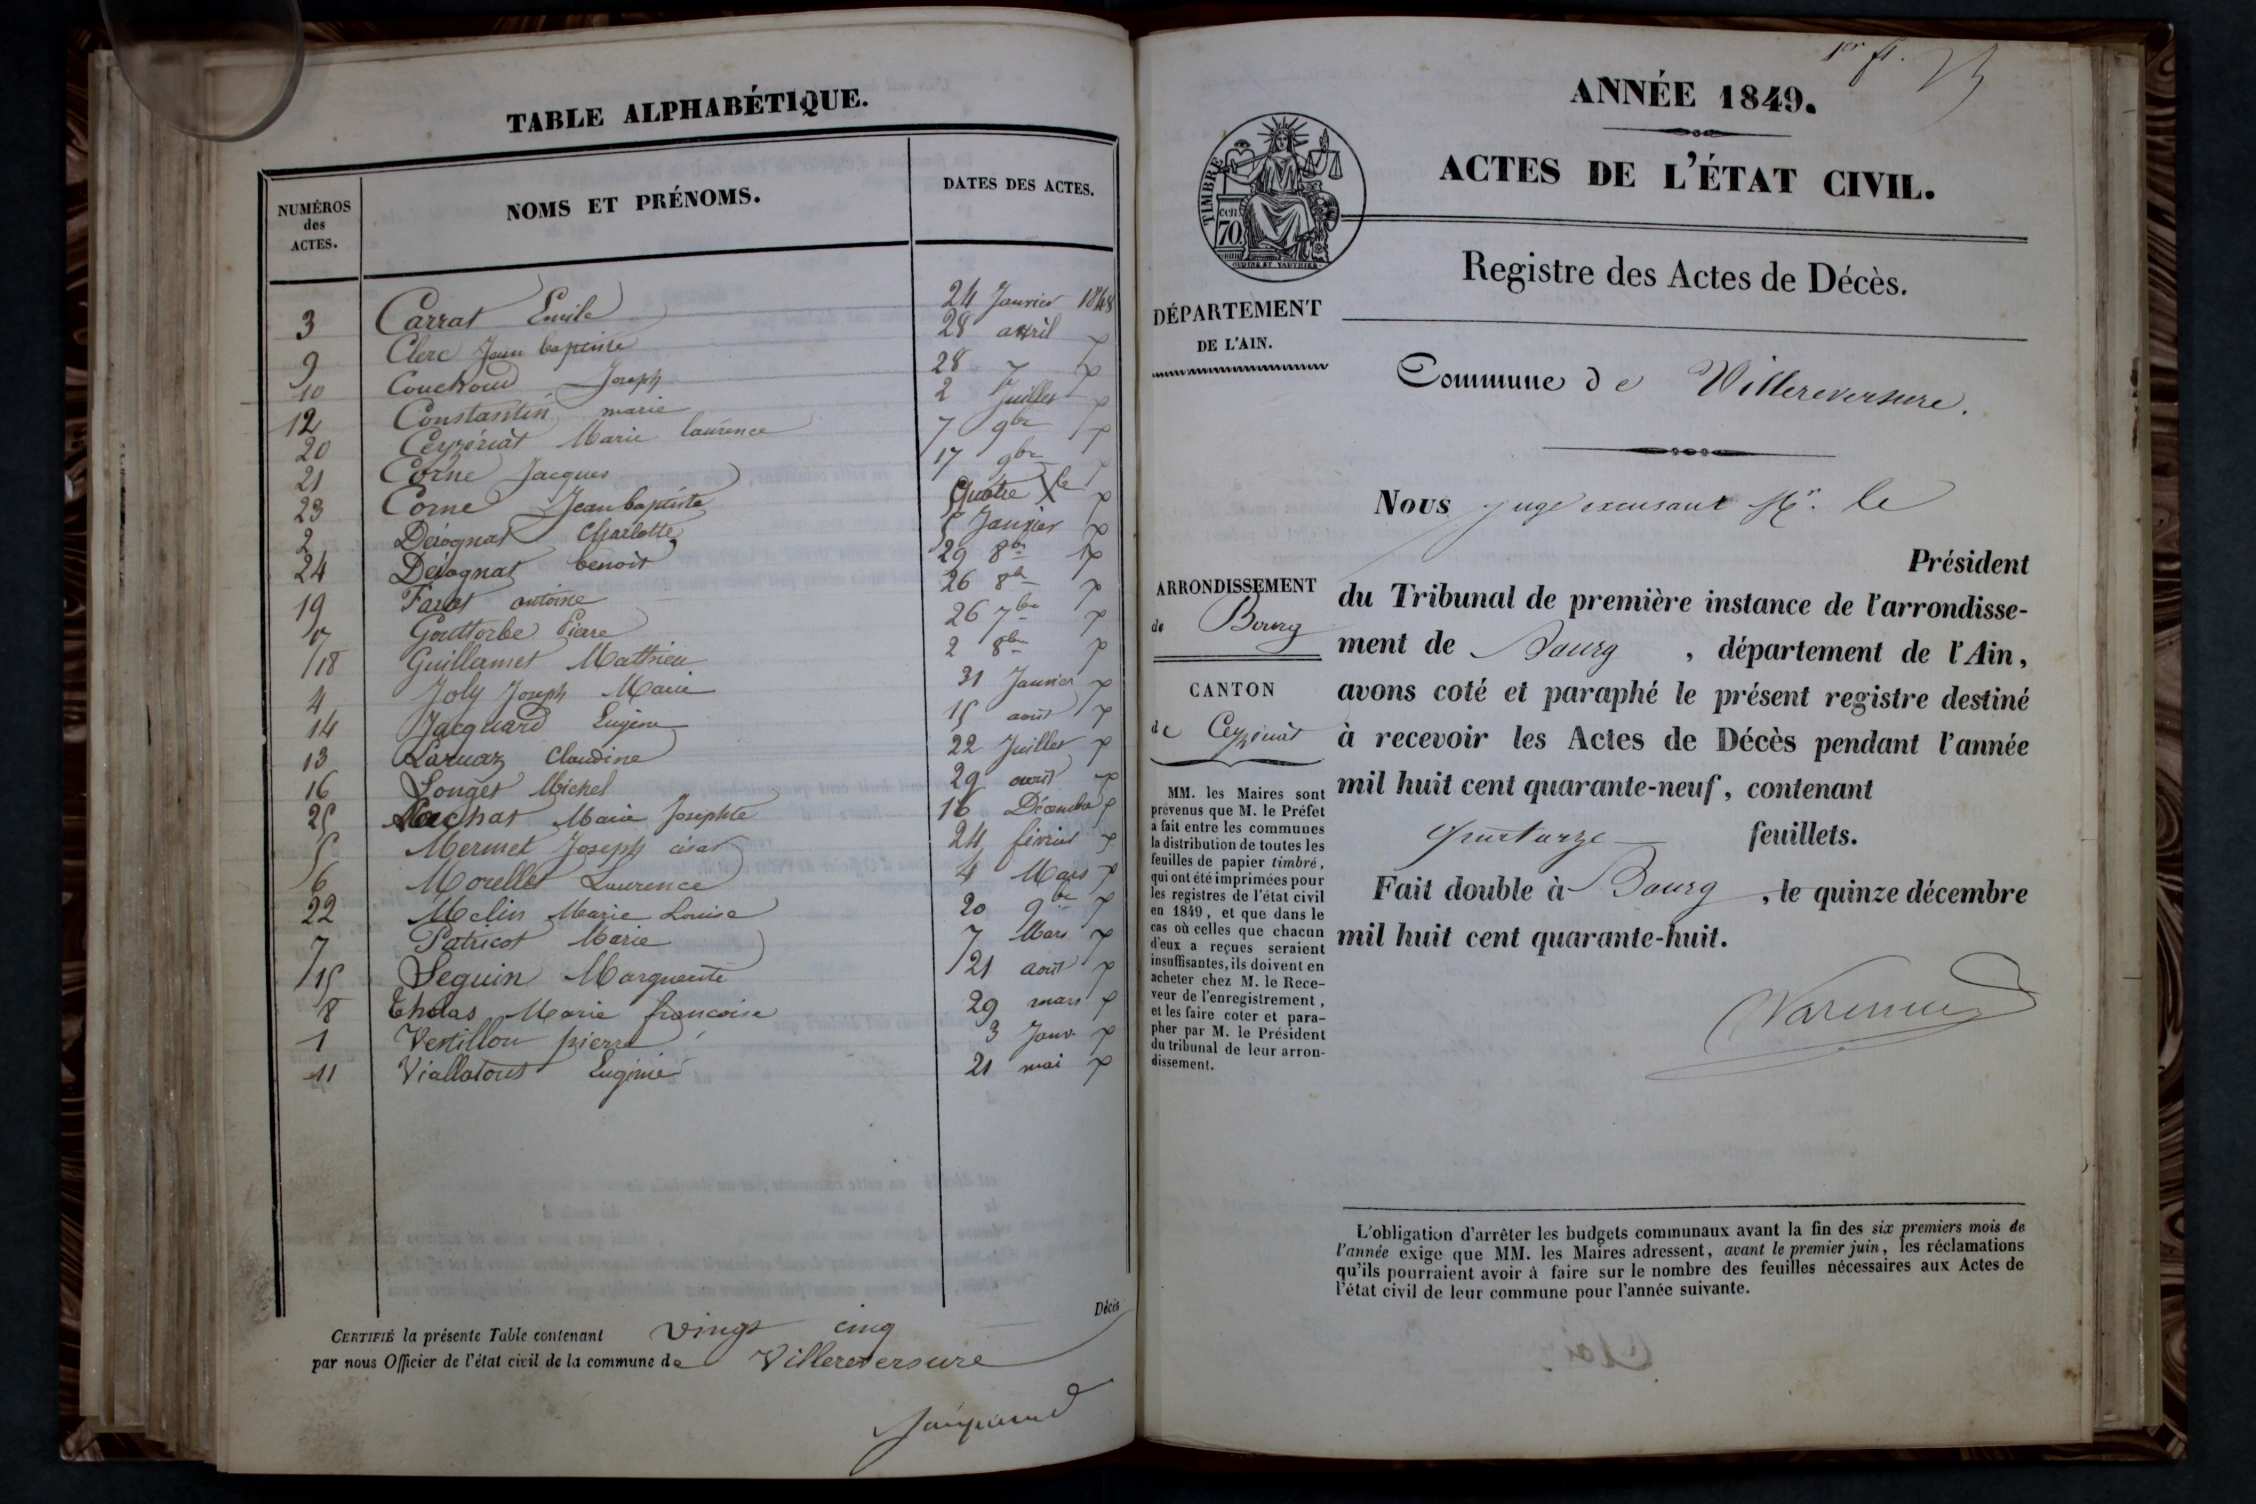 TABLE ALPHABÉTIQUE.
NUMÉROS
des
ACTES.
NOMS ET PRÉNOMS.
DATES DES ACTES.
3 Carrat Emile 24 Janvier 1848
9 Clerc Jean baptiste 28 avril
10 Couchoud Joseph 28
12 Constantin marie 2 Juillet
20 Ceyzériat Marie laurence 7 9bre
21 Corne Jacques 17 9bre
23 Corne Jean baptiste quatre Xbre
2 Dérognat Charlotte 5 Janvier
24 Dérognat benoît 29 8bre
19 Favet antoine 26 8bre
17 Gouttorbe Pierre 26 7bre
18 Guillamet Mathieu 2 8bre
4 Joly Joseph Marie 31 Janvier
14 Jacquard Eugène 15 août
13 Laruaz Claudine 22 Juillet
16 Longet Michel 29 août
25 Machat Marie Josephte 16 Décembre
5 Mermet Joseph césar 24 février
6 Morellet Laurence 4 Mars
22 Melin Marie Louise 20 9bre
7 Patricot Marie 7 Mars
15 Seguin Marguerite 21 août
8 Tholas Marie françoise 29 mars
1 Vertillon pierre 3 Janv
11 Viallatout Eugénie 21 mai
Décès
CERTIFIÉ la présente Table contenant vingt cinq
par nous Officier de l'état civil de la commune de Villereversure
Jacquand
1er ft.
ANNÉE 1849.
ACTES DE L'ÉTAT CIVIL.
TIMBRE
70
Registre des Actes de Décès.
DÉPARTEMENT
DE L'AIN.
Commune de Villereversure.
Nous juge excusant Mr. le
Président
ARRONDISSEMENT
de Bourg
CANTON
de Ceyzériat
du Tribunal de première instance de l'arrondisse-
ment de Bourg , département de l'Ain,
avons coté et paraphé le présent registre destiné
à recevoir les Actes de Décès pendant l'année
mil huit cent quarante-neuf, contenant
quatorze feuillets.
Fait double à Bourg , le quinze décembre
mil huit cent quarante-huit.
MM. les Maires sont
prévenus que M. le Préfet
a fait entre les communes
la distribution de toutes les
feuilles de papier timbré,
qui ont été imprimées pour
les registres de l'état civil
en 1849, et que dans le
cas où celles que chacun
d'eux a reçues seraient
insuffisantes, ils doivent en
acheter chez M. le Rece-
veur de l'enregistrement,
et les faire coter et para-
pher par M. le Président
du tribunal de leur arron-
dissement.
L'obligation d'arrêter les budgets communaux avant la fin des six premiers mois de
l'année exige que MM. les Maires adressent, avant le premier juin, les réclamations
qu'ils pourraient avoir à faire sur le nombre des feuilles nécessaires aux Actes de
l'état civil de leur commune pour l'année suivante.